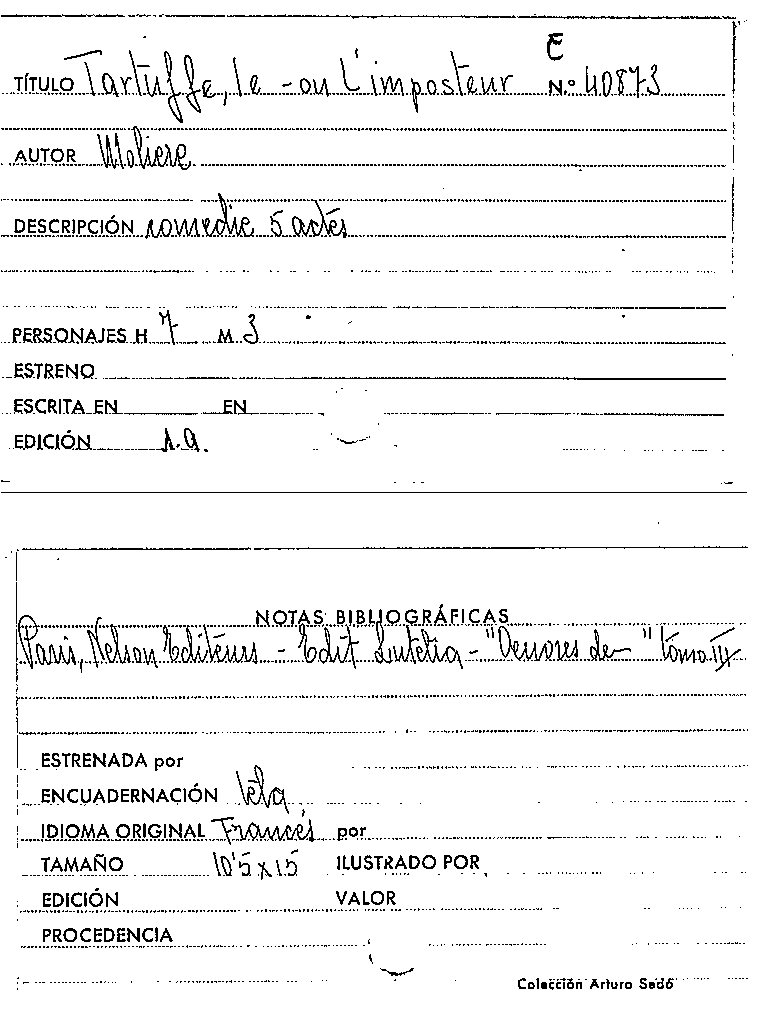 C
TÍTULO Tartuffe, le - ou L'imposteur N.º 40873
AUTOR Moliere
DESCRIPCIÓN comedie 5 actes
PERSONAJES H 7 M 3
ESTRENO
ESCRITA EN EN
EDICIÓN s.a.
NOTAS BIBLIOGRÁFICAS
Paris, Nelson Editeurs - Edit Lutetia - "Oeuvres de " tomo III
ESTRENADA por
ENCUADERNACIÓN tela
IDIOMA ORIGINAL Francés por
TAMAÑO 10'5 x 15 ILUSTRADO POR
EDICIÓN VALOR
PROCEDENCIA
Colección Arturo Sedó